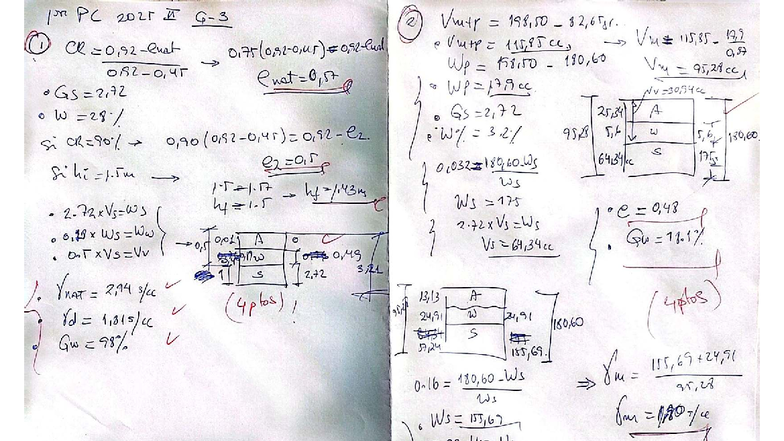 1er PC 2025 II G-3
①
CR = 0,92 - enat / 0,92 - 0,45 → 0,75(0,92-0,45) = 0,92-enat
enat = 0,57
• Gs = 2,72
• W = 28%
Si CR = 90% → 0,90(0,92-0,45) = 0,92 - e2
e2 = 0,5
Si hi = 1.5m →
1.5 = 1.57
hf = 1.5
→ hf = 1.43m
• 2.72 x Vs = Ws
• 0.18 x Ws = Ww
• 0.5 x Vs = Vv
0,5
0,01
A
0
W
0,49
1
S
2,72
3,21
• γnat = 2,14 g/cc
• γd = 1,81 g/cc
• Gw = 98%
(4 ptos) !
②
Vm+p = 198,50 - 82,65 gr.
• Vm+p = 115,85 cc
→ Vm = 115,85 - 17,9 / 0,87
Wp = 198,50 - 180,60
Vm = 95,28 cc
• Wp = 17,9 cc
• Gs = 2,72
• W% = 3.2%
0,032 = 180,60 - Ws / Ws
Ws = 175
2.72 x Vs = Ws
Vs = 64,34 cc
Vv = 30,94 cc
95,28
25,34
A
5,6
W
5,6
64,34 cc
S
175
180,60
• e = 0,48
• Gw = 18.1%
(4 ptos)
95,28
13,13
A
24,91
W
24,91
57,24
S
155,69
180,60
0.16 = 180,60 - Ws / Ws
• Ws = 155,69
⇒ γm = 155,69 + 24,91 / 95,28
γm = 1,90 g/cc